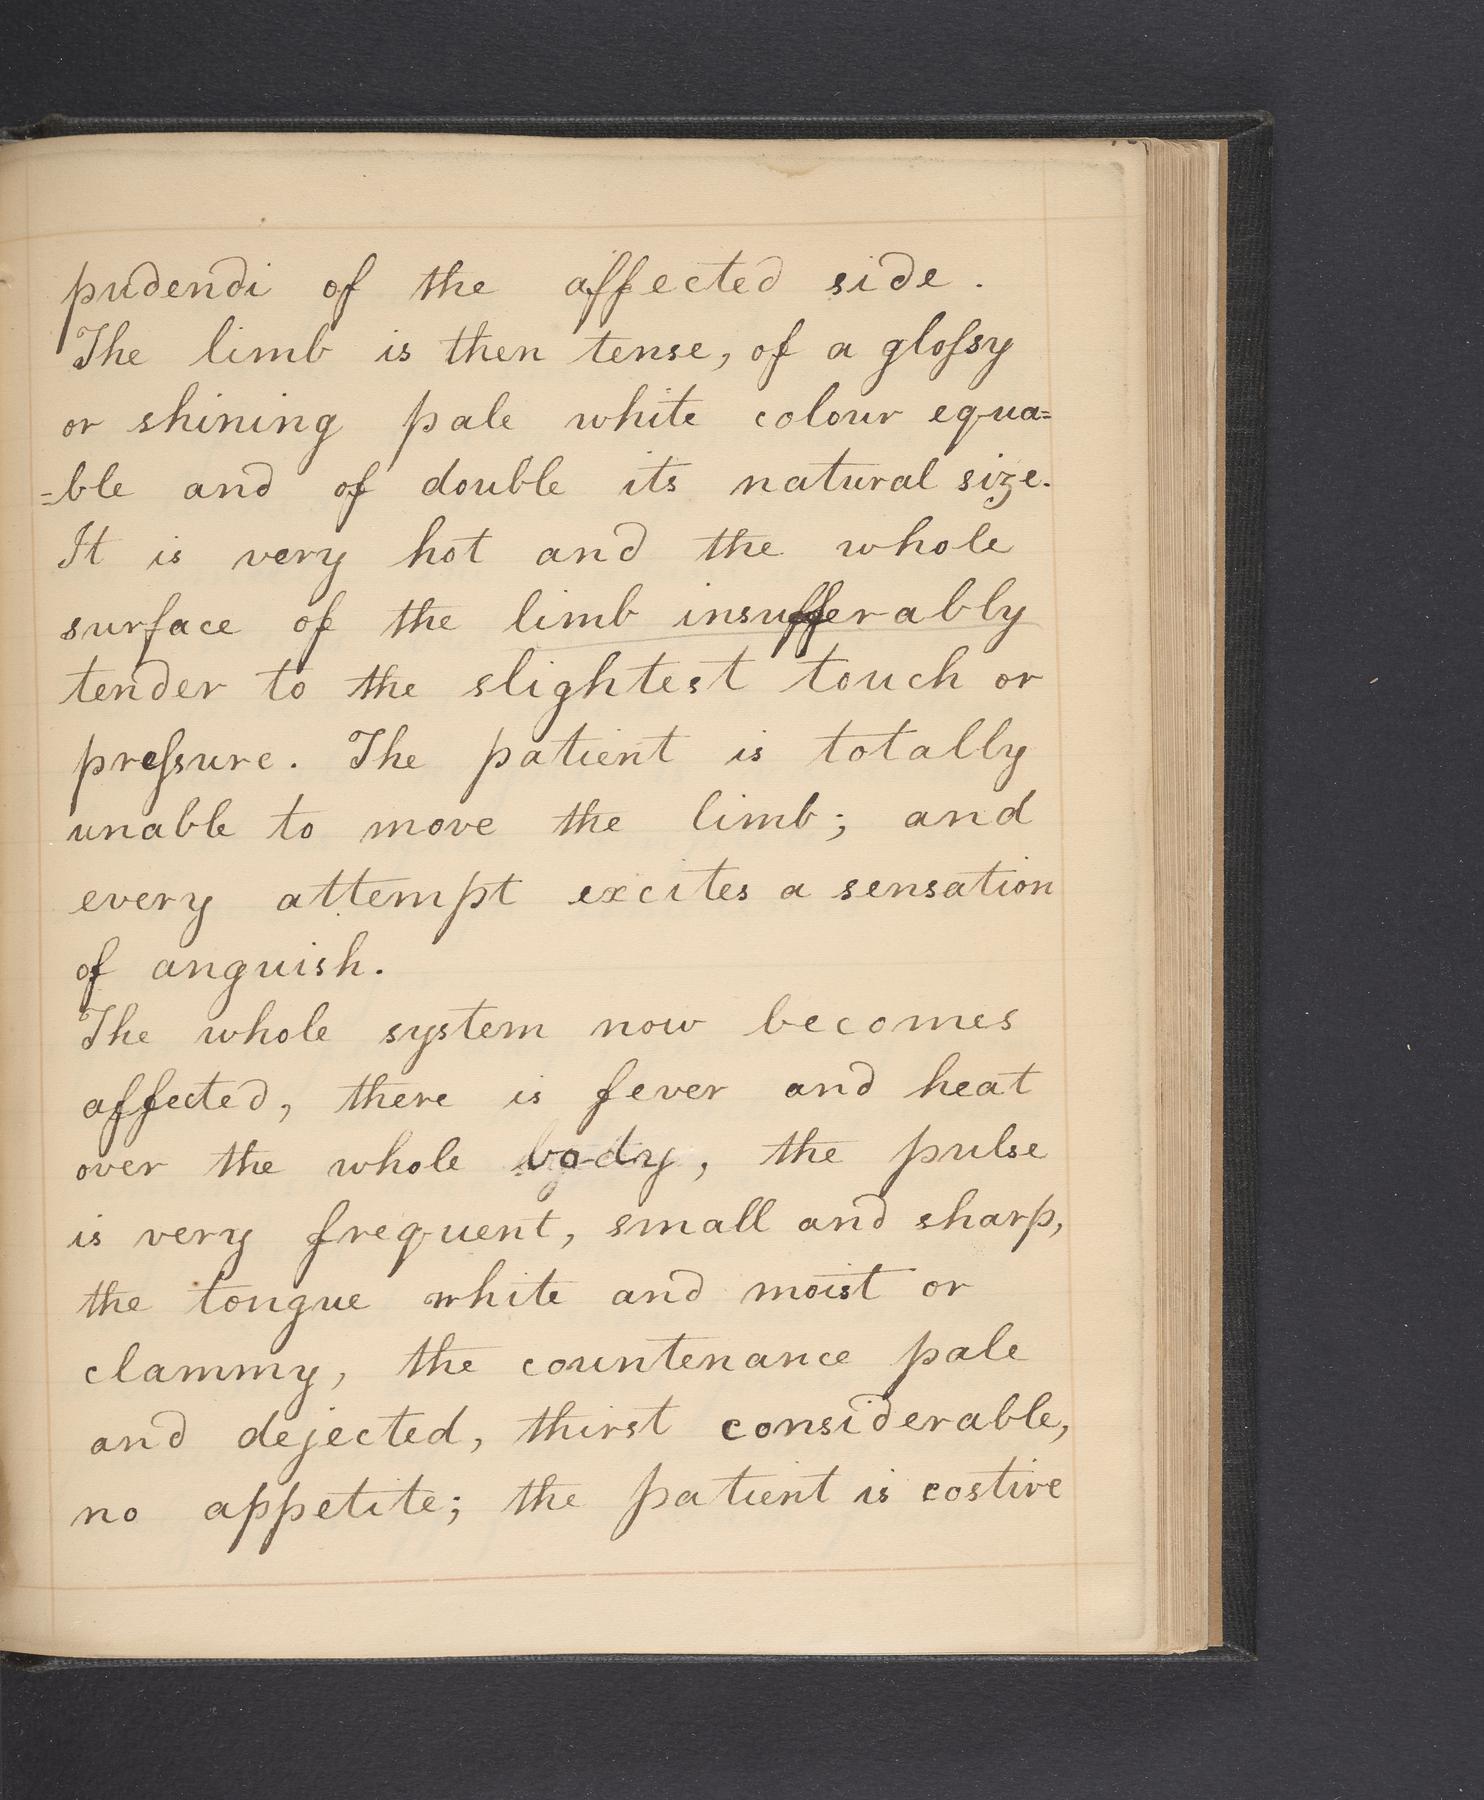 pudendi of the affected side.
The limb is then tense, of a gloſsy
or shining pale white colour equa=
=ble and of double its natural size.
It is very hot and the whole
surface of the limb insufferably
tender to the slightest touch or
preſsure. The patient is totally
unable to move the limb; and
every attempt excites a sensation
of anguish.
The whole system now becomes
affected, there is fever and heat
over the whole body, the pulse
is very frequent, small and sharp,
the tongue white and moist or
clammy, the countenance pale
and dejected, thirst considerable,
no appetite; the patient is costive